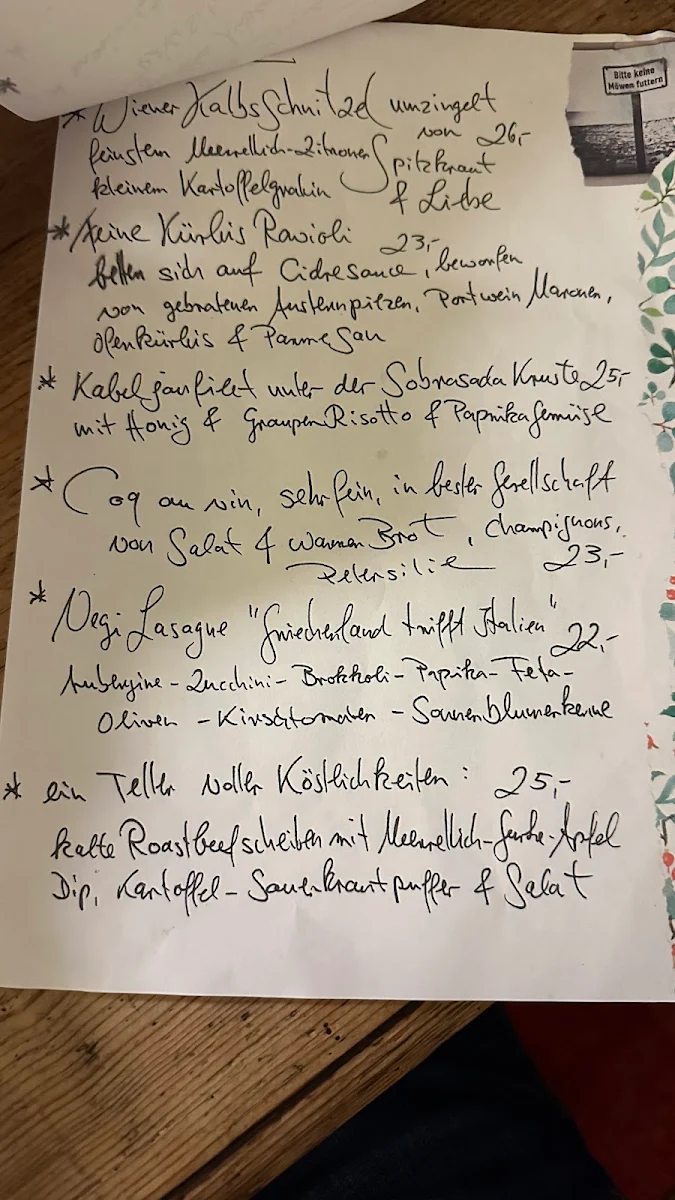 Bitte keine
Möwen füttern
* Wiener KalbsSchnitzel umzingelt
von 26,-
feinstem Meerrettich-Zitronen Spitzkraut
kleinem Kartoffelgratin & Liebe
* feine Kürbis Ravioli 23,-
betten sich auf Cidresauce, beworfen
von gebratenen Austernpilzen, Portwein Maronen,
Ofenkürbis & Parmesan
* Kabeljaufilet unter der Sobrasada Kruste 25,-
mit Honig & GraupenRisotto & PaprikaGemüse
* Coq au vin, sehr fein, in bester Gesellschaft
von Salat & warmen Brot, Champignons,
Petersilie 23,-
* Vegi Lasagne "Griechenland trifft Italien" 22,-
Aubergine - Zucchini - Brokkoli - Paprika - Feta -
Oliven - Kirschtomaten - Sonnenblumenkerne
* ein Teller voller Köstlichkeiten : 25,-
kalte Roastbeefscheiben mit Meerrettich-Gurke-Apfel
Dip, Kartoffel-Sauerkrautpuffer & Salat